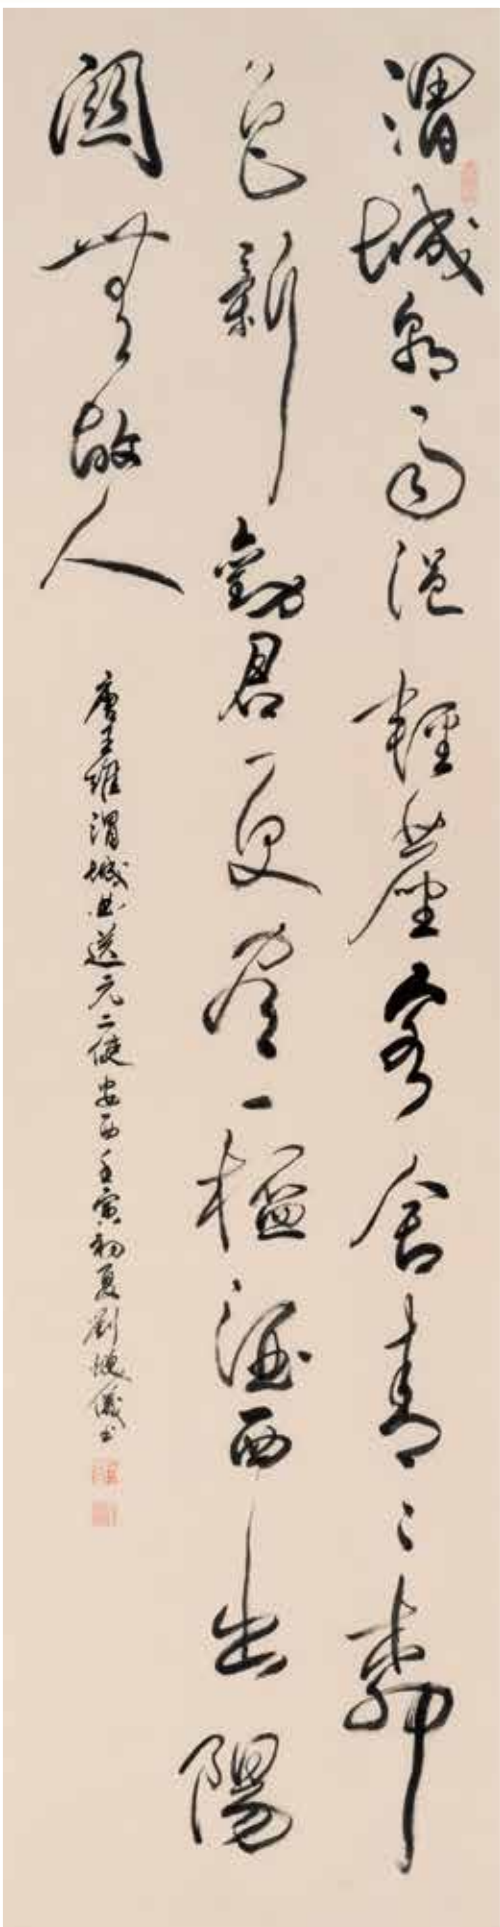 渭城朝雨浥輕塵客舍青〻柳
色新勸君更盡一杯酒西出陽
關無故人
唐王維渭城曲送元二使安西壬寅初夏劉儀書